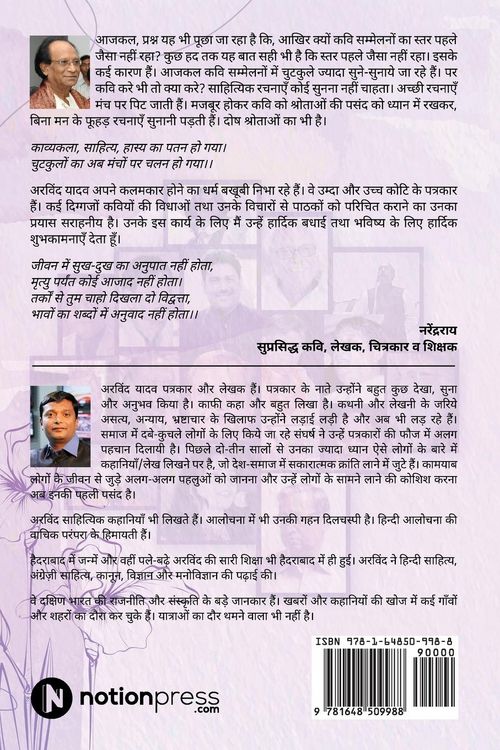 आजकल, प्रश्न यह भी पूछा जा रहा है कि, आखिर क्यों कवि सम्मेलनों का स्तर पहले
जैसा नहीं रहा? कुछ हद तक यह बात सही भी है कि स्तर पहले जैसा नहीं रहा। इसके
कई कारण हैं। आजकल कवि सम्मेलनों में चुटकुले ज्यादा सुने-सुनाये जा रहे हैं। पर
कवि करे भी तो क्या करे? साहित्यिक रचनाएँ कोई सुनना नहीं चाहता। अच्छी रचनाएँ
मंच पर पिट जाती हैं। मजबूर होकर कवि को श्रोताओं की पसंद को ध्यान में रखकर,
बिना मन के फूहड़ रचनाएँ सुनानी पड़ती हैं। दोष श्रोताओं का भी है।
काव्यकला, साहित्य, हास्य का पतन हो गया।
चुटकुलों का अब मंचों पर चलन हो गया।।
अरविंद यादव अपने कलमकार होने का धर्म बखूबी निभा रहे हैं। वे उम्दा और उच्च कोटि के पत्रकार
हैं। कई दिग्गजों कवियों की विधाओं तथा उनके विचारों से पाठकों को परिचित कराने का उनका
प्रयास सराहनीय है। उनके इस कार्य के लिए मैं उन्हें हार्दिक बधाई तथा भविष्य के लिए हार्दिक
शुभकामनाएँ देता हूँ।
जीवन में सुख-दुख का अनुपात नहीं होता,
मृत्यु पर्यंत कोई आजाद नहीं होता।
तर्कों से तुम चाहो दिखला दो विद्वत्ता,
भावों का शब्दों में अनुवाद नहीं होता।।
नरेंद्रराय
सुप्रसिद्ध कवि, लेखक, चित्रकार व शिक्षक
अरविंद यादव पत्रकार और लेखक हैं। पत्रकार के नाते उन्होंने बहुत कुछ देखा, सुना
और अनुभव किया है। काफी कहा और बहुत लिखा है। कथनी और लेखनी के जरिये
असत्य, अन्याय, भ्रष्टाचार के खिलाफ उन्होंने लड़ाई लड़ी है और अब भी लड़ रहे हैं।
समाज में दबे-कुचले लोगों के लिए किये जा रहे संघर्ष ने उन्हें पत्रकारों की फौज में अलग
पहचान दिलायी है। पिछले दो-तीन सालों से उनका ज्यादा ध्यान ऐसे लोगों के बारे में
कहानियाँ/लेख लिखने पर है, जो देश-समाज में सकारात्मक क्रांति लाने में जुटे हैं। कामयाब
लोगों के जीवन से जुड़े अलग-अलग पहलुओं को जानना और उन्हें लोगों के सामने लाने की कोशिश करना
अब इनकी पहली पसंद है।
अरविंद साहित्यिक कहानियाँ भी लिखते हैं। आलोचना में भी उनकी गहन दिलचस्पी है। हिन्दी आलोचना की
वाचिक परंपरा के हिमायती हैं।
हैदराबाद में जन्में और वहीं पले-बढ़े अरविंद की सारी शिक्षा भी हैदराबाद में ही हुई। अरविंद ने हिन्दी साहित्य,
अंग्रेज़ी साहित्य, कानून, विज्ञान और मनोविज्ञान की पढ़ाई की।
वे दक्षिण भारत की राजनीति और संस्कृति के बड़े जानकार हैं। खबरों और कहानियों की खोज में कई गाँवों
और शहरों का दौरा कर चुके हैं। यात्राओं का दौर थमने वाला भी नहीं है।
ISBN 978-1-64850-998-8
90000
9 781648 509988
N notionpress
.com